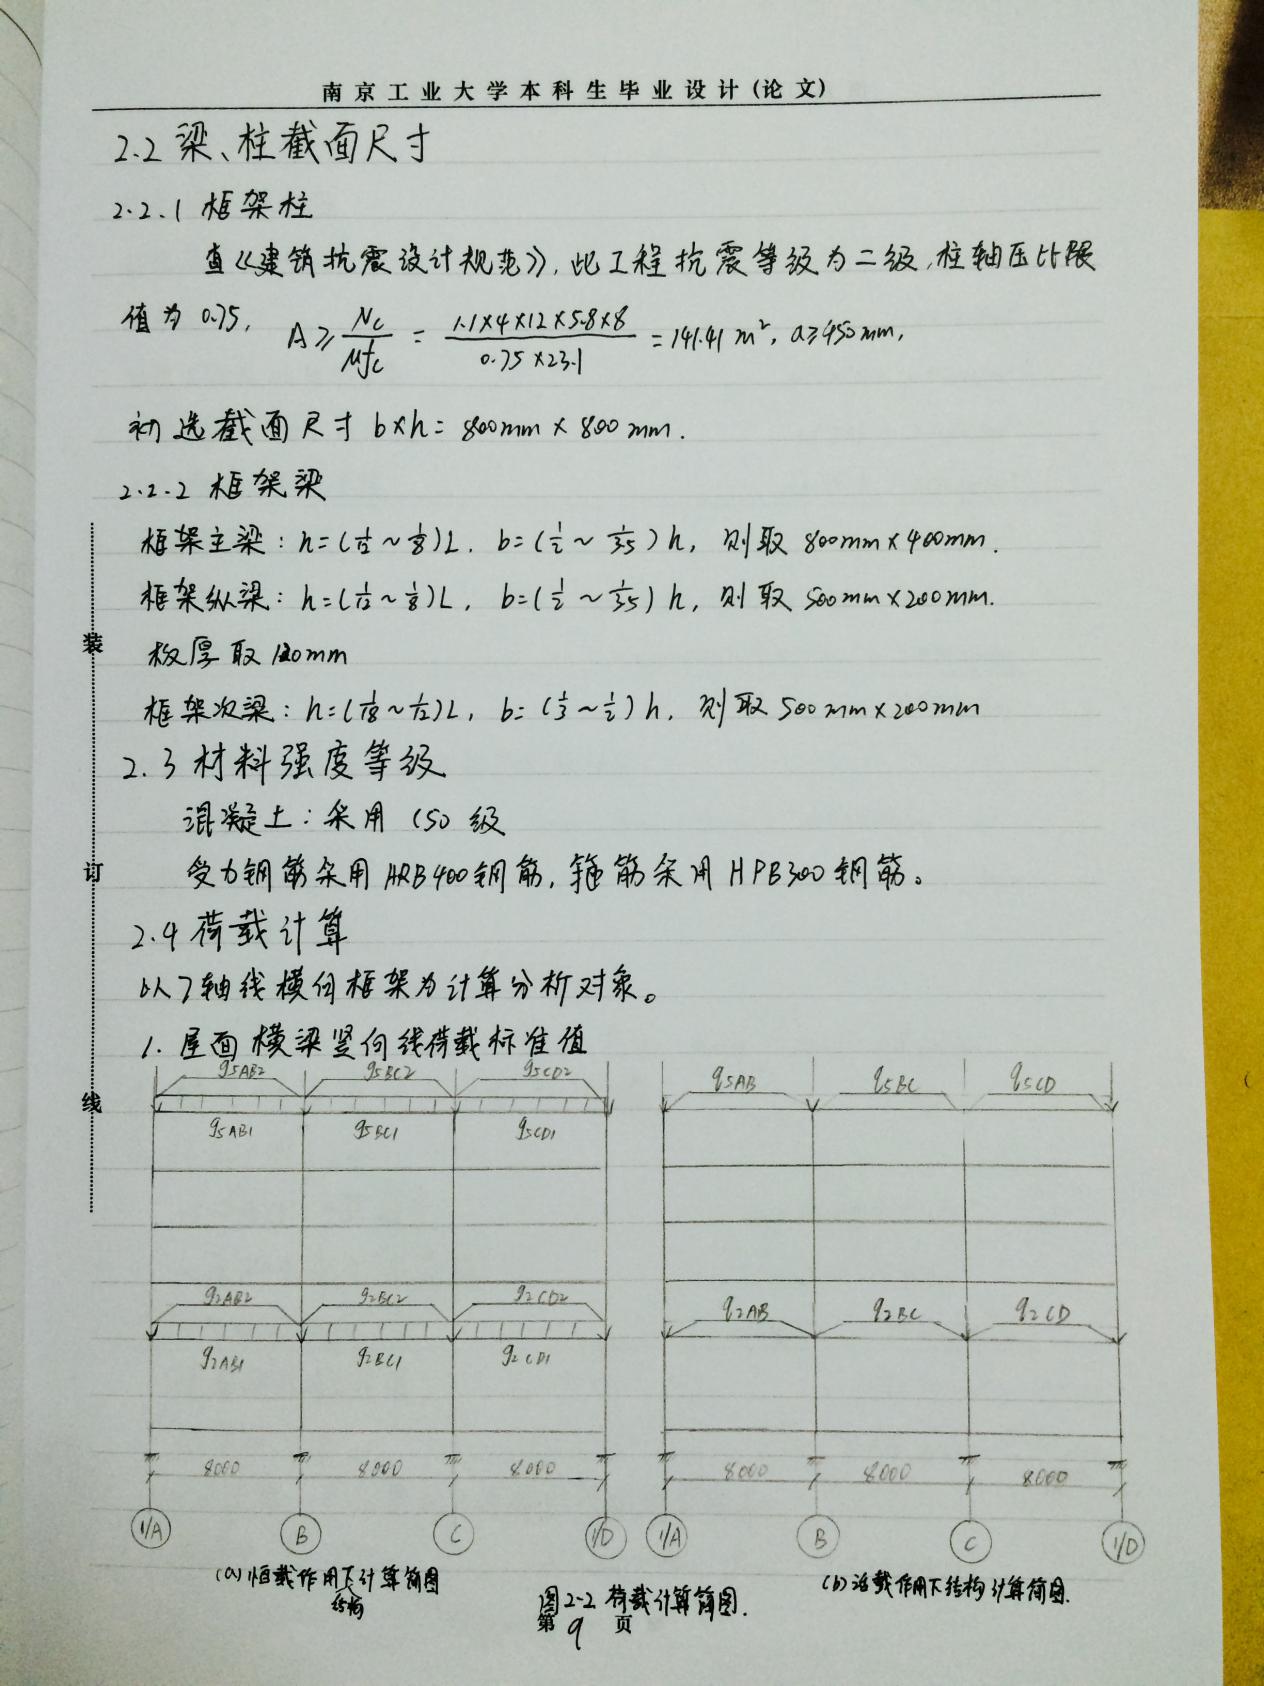 南京工业大学本科生毕业设计(论文)
2.2 梁、柱截面尺寸
2.2.1 框架柱
查《建筑抗震设计规范》,此工程抗震等级为二级,柱轴压比限
值为 0.75, A≥Nc/μfc = 1.1×4×12×5.8×8/0.75×23.1 = 141.41 m², a≥450mm,
初选截面尺寸 b×h= 800mm × 800mm.
2.2.2 框架梁
框架主梁: h=(1/12~1/8)L, b=(1/2~1/3.5)h, 则取 800mm×400mm.
框架纵梁: h=(1/12~1/8)L, b=(1/2~1/3.5)h, 则取 500mm×200mm.
板厚取120mm
框架次梁: h=(1/18~1/12)L, b=(1/3~1/2)h, 则取 500mm×200mm
2.3 材料强度等级
混凝土: 采用 C50 级
受力钢筋采用 HRB400钢筋, 箍筋采用 HPB300钢筋。
2.4 荷载计算
以7轴线横向框架为计算分析对象。
1. 屋面横梁竖向线荷载标准值
g5AB2 g5BC2 g5CD2 q5AB q5BC q5CD
g5AB1 g5BC1 g5CD1
g2AB2 g2BC2 g2CD2 q2AB q2BC q2CD
g2AB1 g2BC1 g2CD1
8000 8000 8000 8000 8000 8000
1/A B C 1/D 1/A B C 1/D
(a)恒载作用下结构计算简图
(b)活载作用下结构计算简图.
图2-2 荷载计算简图.
第 9 页
装
订
线